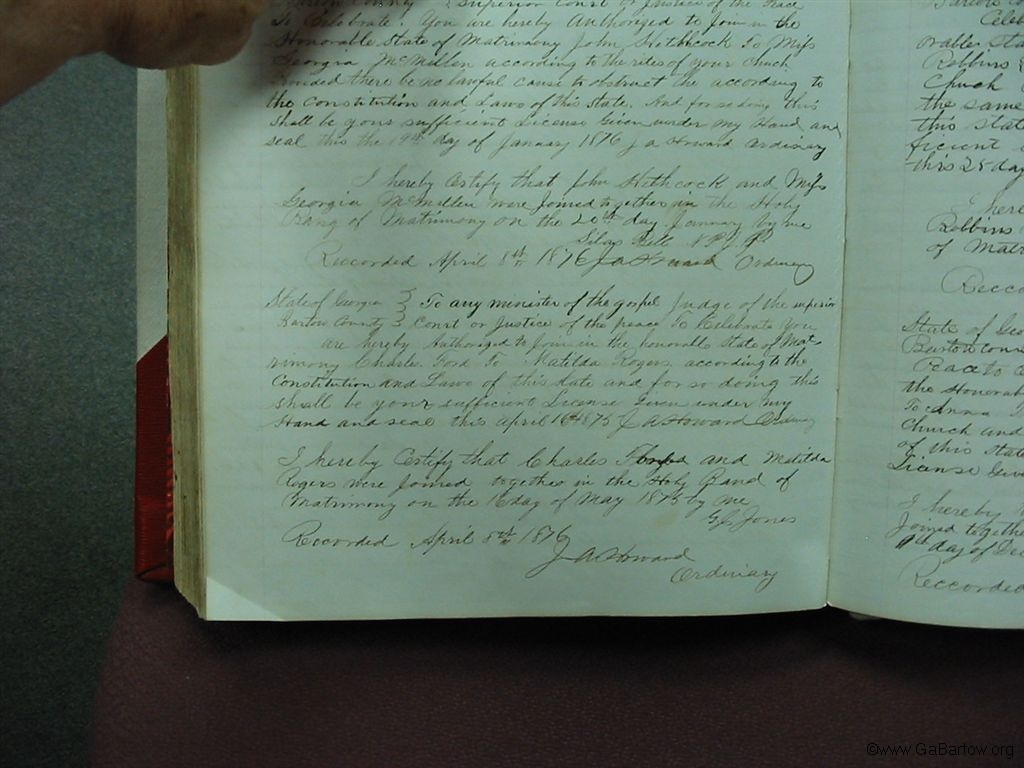 Bartow County Superior Court or Justice of the Peace
To Celebrate. You are hereby Authorized to Join in the
Honorable State of Matrimony John Hethcock To Miss
Georgia McMullen according to the rites of your Church
provided there be no lawful cause to obstruct the according to
the Constitution and Laws of this State. And for so doing this
Shall be your sufficient License Given under my Hand and
seal this the 19th day of January 1876 J A Howard Ordinary
I hereby Certify that John Hethcock and Miss
Georgia McMullen were joined together in the Holy
Bang of Matrimony on the 20th day January by me
Silas Bell N P J P
Reccorded April 8th 1876 J A Howard Ordinary
State of Georgia } To any minister of the gospel Judge of the superior
Bartow County } Court or Justice of the peace To Celebrate You
are hereby Authorized to Join in the honorable State of Mat
rimony Charles Ford To Matilda Rogers according to the
Constitution and Laws of this State and for so doing this
shall be your sufficient License Given under my
Hand and seal this April 16th 1875 J A Howard Ordinary
I hereby Certify that Charles Ford and Matilda
Rogers were Joined together in the Holy Band of
Matrimony on the 16 day of May 1875 by me
Jones
Reccorded April 8th 1876
J A Howard
Ordinary
Bartow
Celeb
orable Sta
Robbins
Church
the same
this stat
ficient
this 25 day
I here
Robbins
of Matr
Recco
State of Geo
Bartow coun
Peace to
the Honorab
To Anna
Church and
of this State
License Give
I hereby
Joined togeth
day of Dec
Reccorded
©www.GaBartow.org